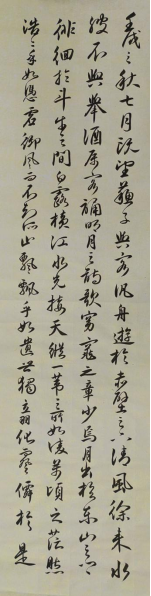 壬戌之秋七月既望蘇子與客汎舟遊於赤壁之下清風徐來水
波不興舉酒屬客誦明月之詩歌窈窕之章少焉月出於東山之上
徘徊於斗牛之間白露橫江水光接天縱一葦之所如凌萬頃之茫然
浩浩乎如憑虛御風而不知其所止飄飄乎如遺世獨立羽化登僊於是